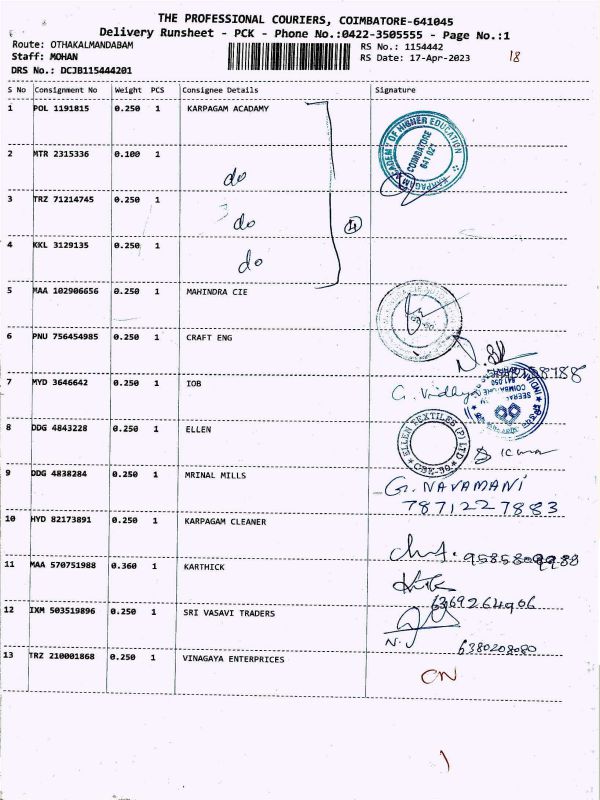 THE PROFESSIONAL COURIERS, COIMBATORE-641045
Delivery Runsheet - PCK - Phone No.:0422-3505555 - Page No.:1
Route: OTHAKALMANDABAM RS No.: 1154442
Staff: MOHAN RS Date: 17-Apr-2023 18
DRS No.: DCJB115444201
S No Consignment No Weight PCS Consignee Details Signature
1 POL 1191815 0.250 1 KARPAGAM ACADAMY
KARPAGAM ACADEMY OF HIGHER EDUCATION
COIMBATORE
641 021
2 MTR 2315336 0.100 1
do
3 TRZ 71214745 0.250 1
do
4
4 KKL 3129135 0.250 1
do
5 MAA 102906656 0.250 1 MAHINDRA CIE
6 PNU 756454985 0.250 1 CRAFT ENG
7 MYD 3646642 0.250 1 IOB
G. Vidhya
COIMBATORE
641.050
8 DDG 4843228 0.250 1 ELLEN
ELLEN TEXTILES (P) LTD
CBE-50
9 DDG 4838284 0.250 1 MRINAL MILLS
G. NAVAMANI
7871227883
10 HYD 82173891 0.250 1 KARPAGAM CLEANER
11 MAA 570751988 0.360 1 KARTHICK
6369264906
12 IXM 503519896 0.250 1 SRI VASAVI TRADERS
N.J 6380208080
13 TRZ 210001868 0.250 1 VINAGAYA ENTERPRICES
CN